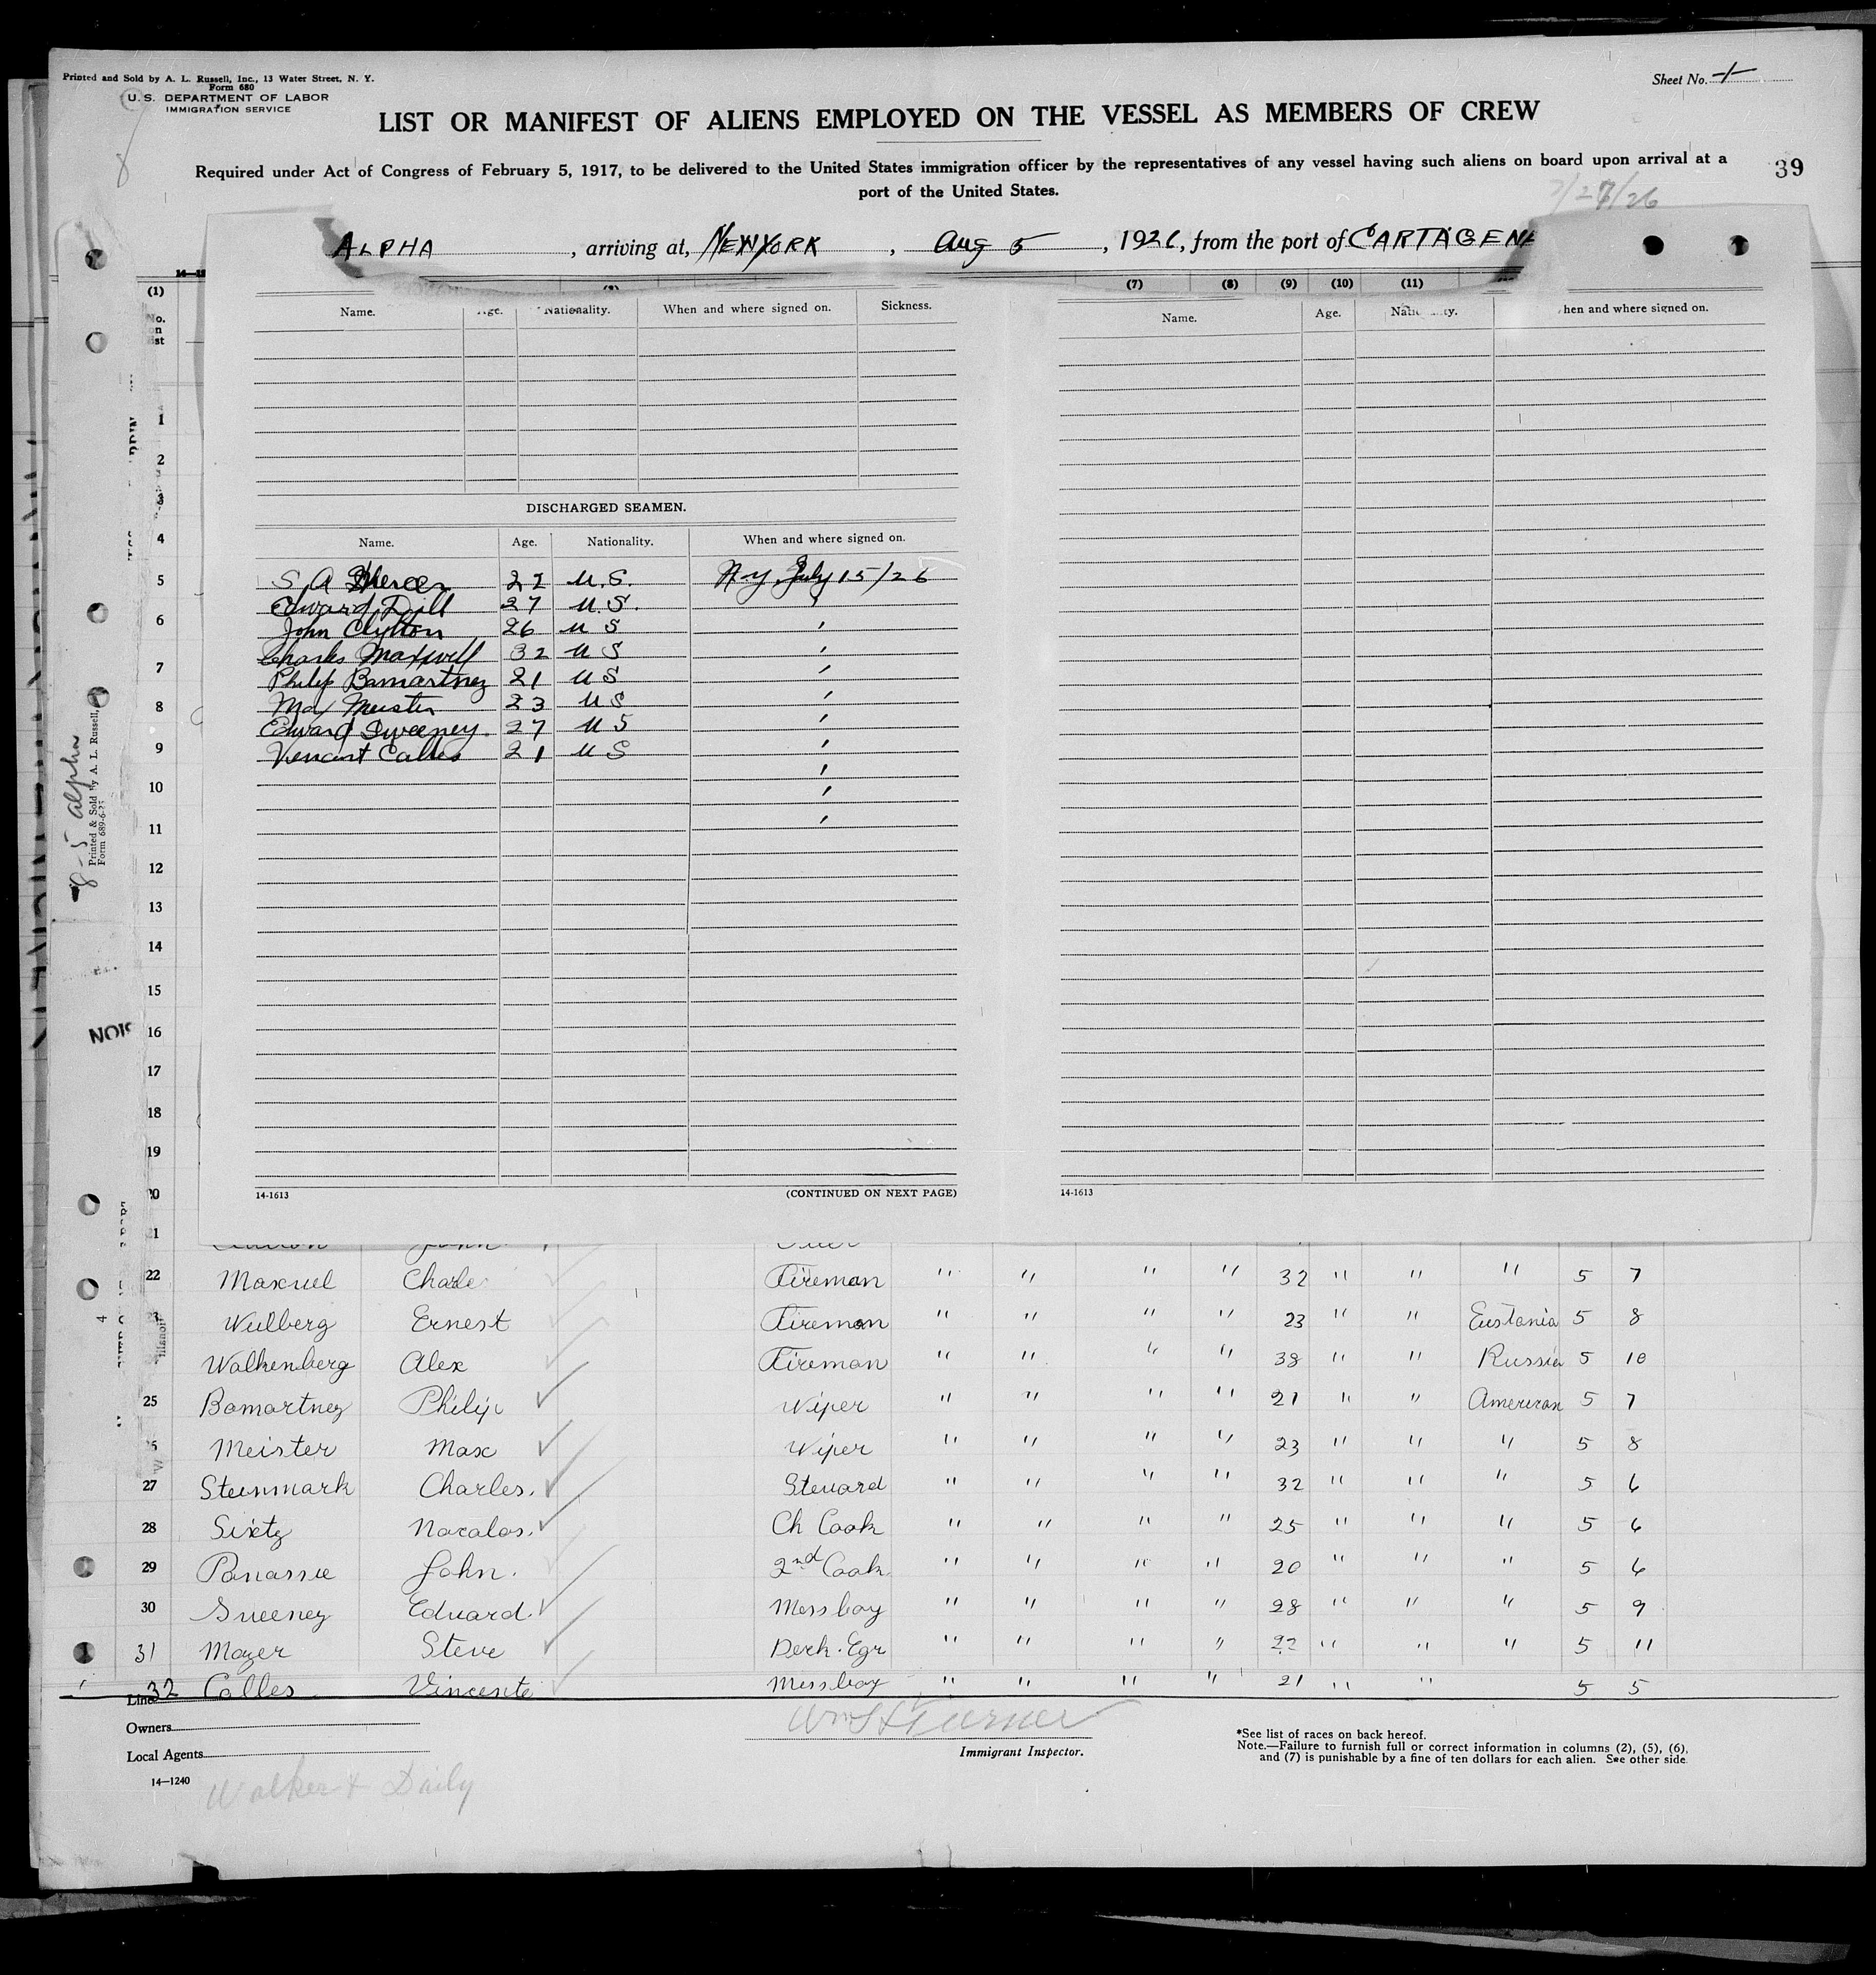 Printed and Sold by A. L. Russell, Inc., 13 Water Street, N. Y.
Form 680
U. S. DEPARTMENT OF LABOR
IMMIGRATION SERVICE
Sheet No. 1
LIST OR MANIFEST OF ALIENS EMPLOYED ON THE VESSEL AS MEMBERS OF CREW
Required under Act of Congress of February 5, 1917, to be delivered to the United States immigration officer by the representatives of any vessel having such aliens on board upon arrival at a
port of the United States.
39
ALPHA, arriving at, NEWYORK, Aug 5, 1926, from the port of CARTAGENA
(1) (7) (8) (9) (10) (11)
Name. Age. Nationality. When and where signed on. Sickness.
Name. Age. Nationality. When and where signed on.
DISCHARGED SEAMEN.
Name. Age. Nationality. When and where signed on.
S. A 22 U.S. N-Y July 15/26
Edward Dill 27 U.S. "
John Clytton 26 U S "
Charles Maxwell 32 U S "
Philip Bamartnez 21 U S "
Max Meister 23 U S "
Edward Sweeney 27 U S "
Vencent Calles 21 U S "
1
2
3
4
5
6
7
8
9
10
11
12
13
14
15
16
17
18
19
20
21
8-5 Alpha
Printed & Sold by A. L. Russell,
Form 689-6-25
14-1613 (CONTINUED ON NEXT PAGE)
14-1613
22 Maxuel Charle Fireman " " " " 32 " " " 5 7
23 Wulberg Ernest Fireman " " " " 23 " " Eustania 5 8
Walkenberg Alex Fireman " " " " 38 " " Russia 5 10
25 Bamartnez Philip Wiper " " " " 21 " " American 5 7
26 Meister Max Wiper " " " " 23 " " " 5 8
27 Steinmark Charles. Steuard " " " " 32 " " " 5 6
28 Sixtz Nacalas. Ch Cook " " " " 25 " " " 5 6
29 Panassie John. 2nd Cook " " " " 20 " " " 5 6
30 Sueeney Eduard. Messboy " " " " 28 " " " 5 9
31 Mazer Steve Deck-Egr " " " " 22 " " " 5 11
32 Calles Vincente Messboy " " " " 21 " " 5 5
Line
Owners
Local Agents
14—1240
Walker & Daily
Immigrant Inspector.
*See list of races on back hereof.
Note.—Failure to furnish full or correct information in columns (2), (5), (6),
and (7) is punishable by a fine of ten dollars for each alien. See other side